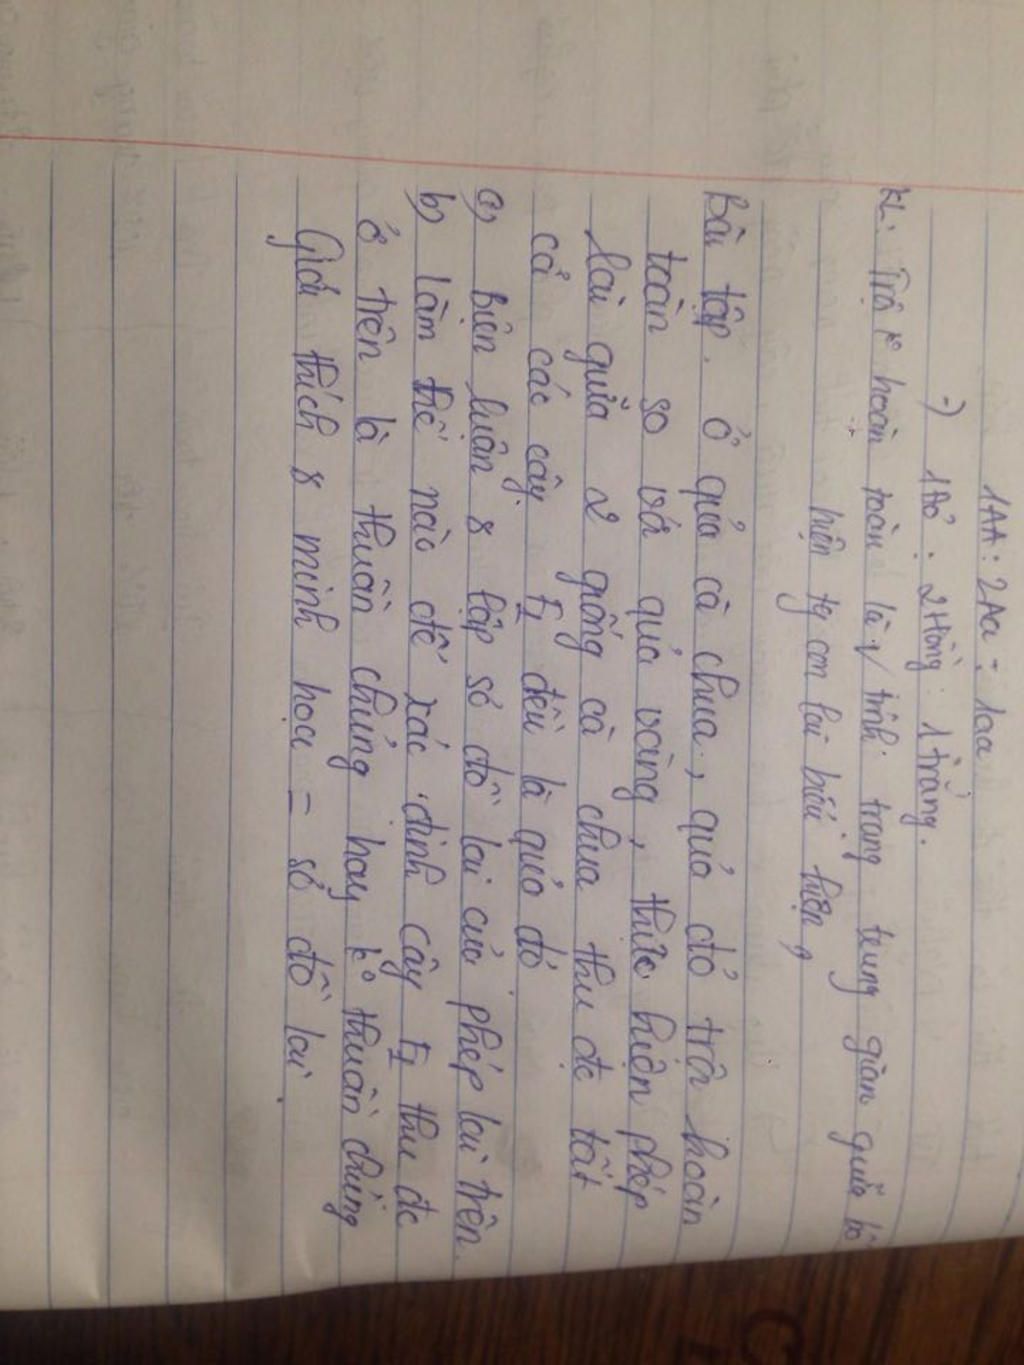 1AA : 2Aa : 1aa
-) 1Đỏ : 2Hồng : 1trắng.
KL: Trội k° hoàn toàn là tính trạng trung gian giữa bố
hiện tg con lai biểu hiện
Bài tập. Ở quả cà chua, quả đỏ trội hoàn
toàn so với quả vàng, thức hiện phép
lai giữa 2 giống cà chua thu đc tất
cả các cây F1 đều là quả đỏ
a, Biện luận & lập sơ đồ lai của phép lai trên.
b, làm thế nào để xác định cây F1 thu đc
ở trên là thuần chủng hay k° thuần chủng
Giải thích & minh họa = sơ đồ lai.